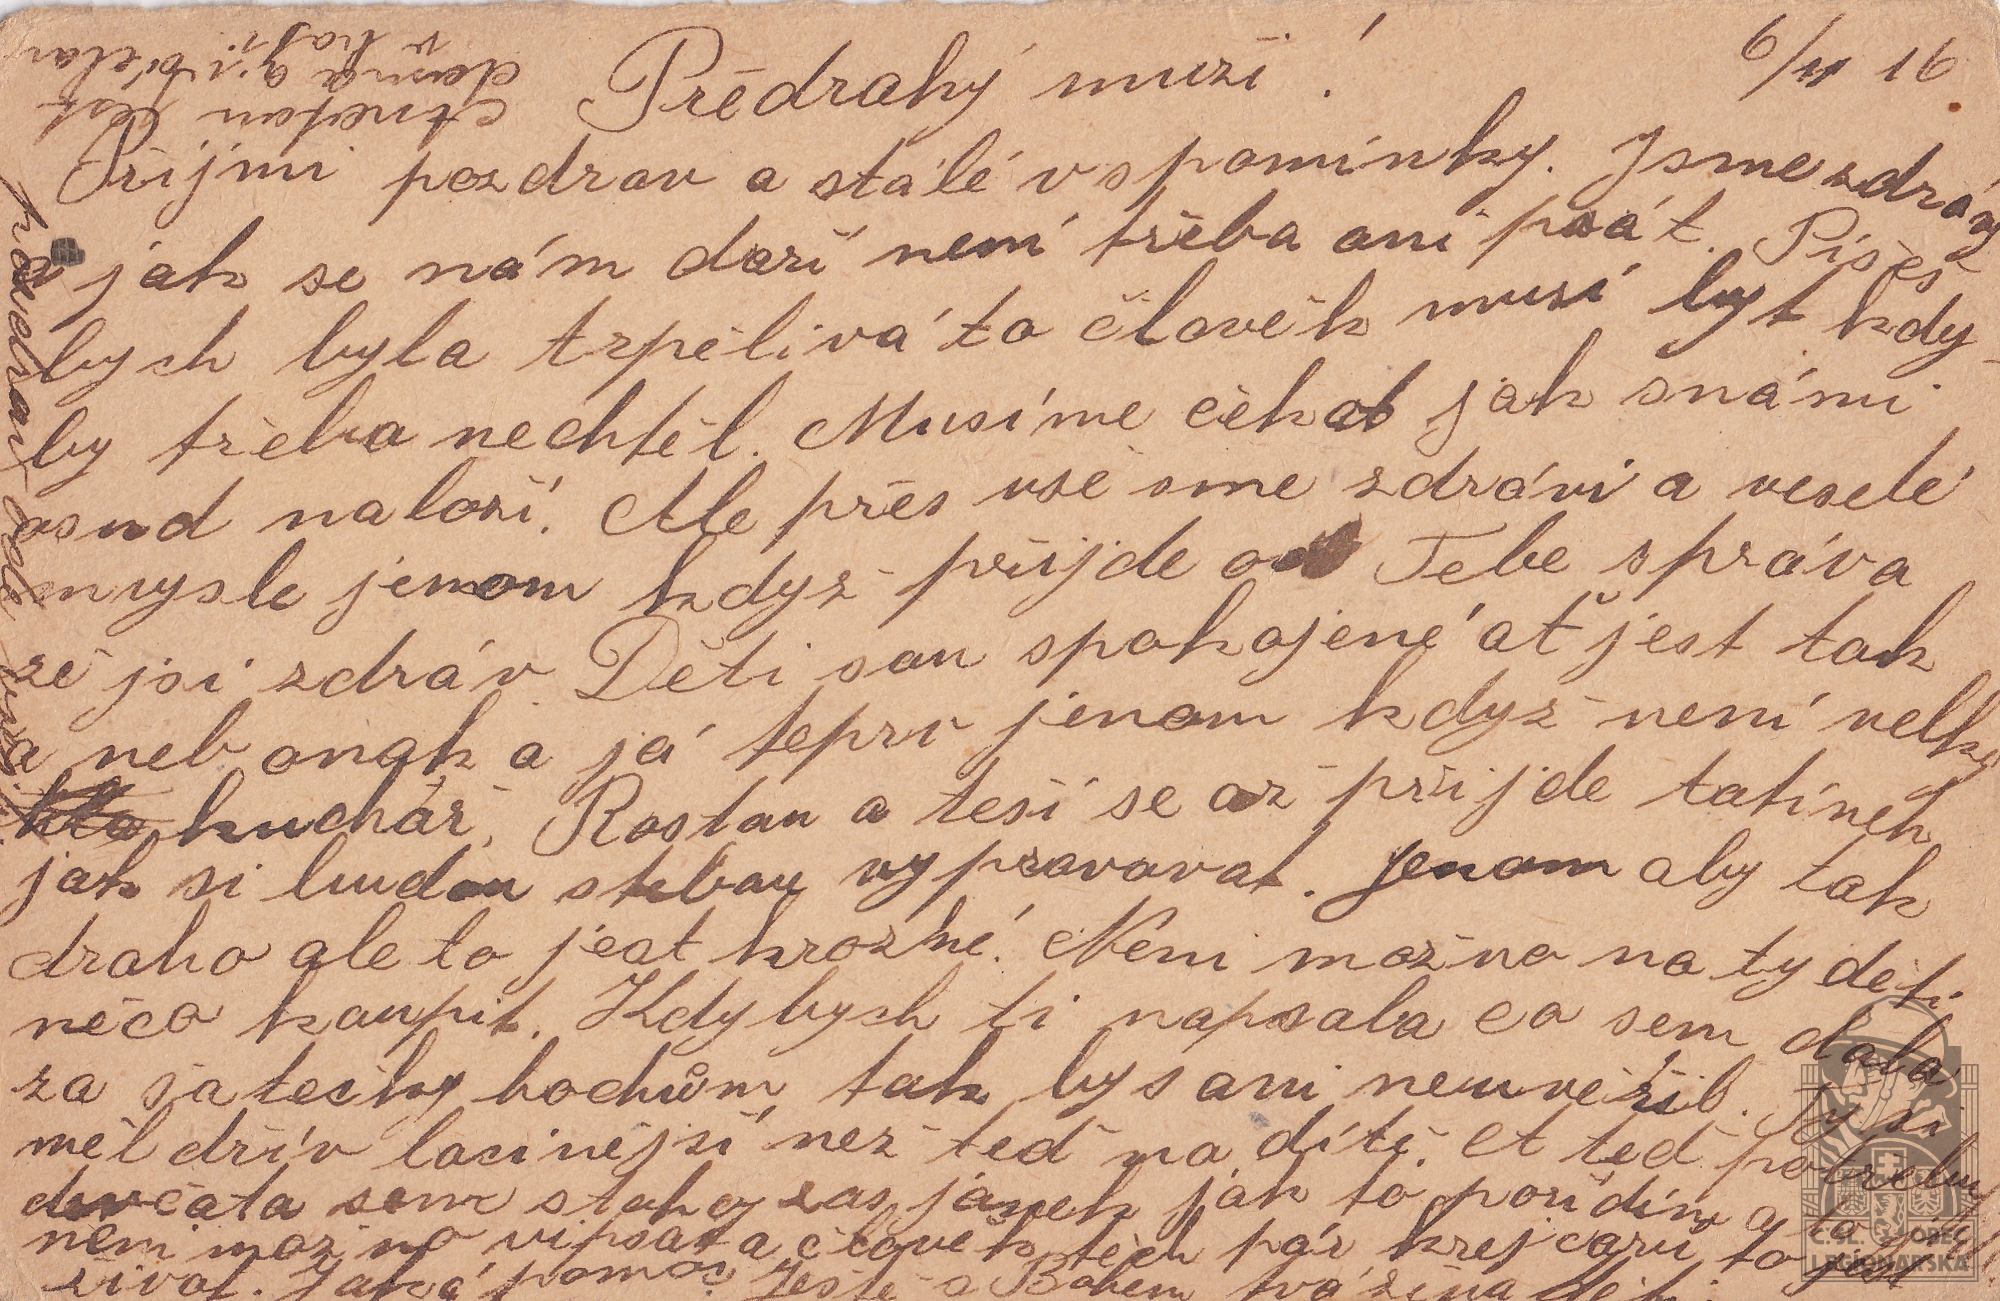 6/11 16
Předrahý muži!
Přijmi pozdrav a stálé vspomínky. Jsme zdrávy
a jak se nám daří není třeba ani psát. Píšeš
bych byla trpělivá to člověk musí byt kdy-
by třeba nechtěl. Musíme čěkat jak snámi
osud naloží. Ale přes vše sme zdrávi a veselé
mysle jenom když přijde od Tebe správa
že jsi zdráv. Děti sou spokojené ať jest tak
a neb onak a já teprv jenom když není velky
kuchář. Rostou a teší se až přijde tatínek
jak si budou stebou vypravovat. Jenom aby tak
draho ale to jest hrozné. Néni možno na ty děti
něco koupit. Kdybych ti napsala co sem dala
za šatečky hochům, tak bys ani neuvěřil. Ty si
měl dřív lacinější než teď na dítě. A teď potřebují
děvčata sem stahy zas jánek jak to pořídím a to
není možno vipsat a člověk těch pár krejcarů to jest
život. Jaká pomoc. Ještě s Bohem tvá žena děti.
pozdrav ode
Č.SL. OBEC
LEGIONÁŘSKÁ